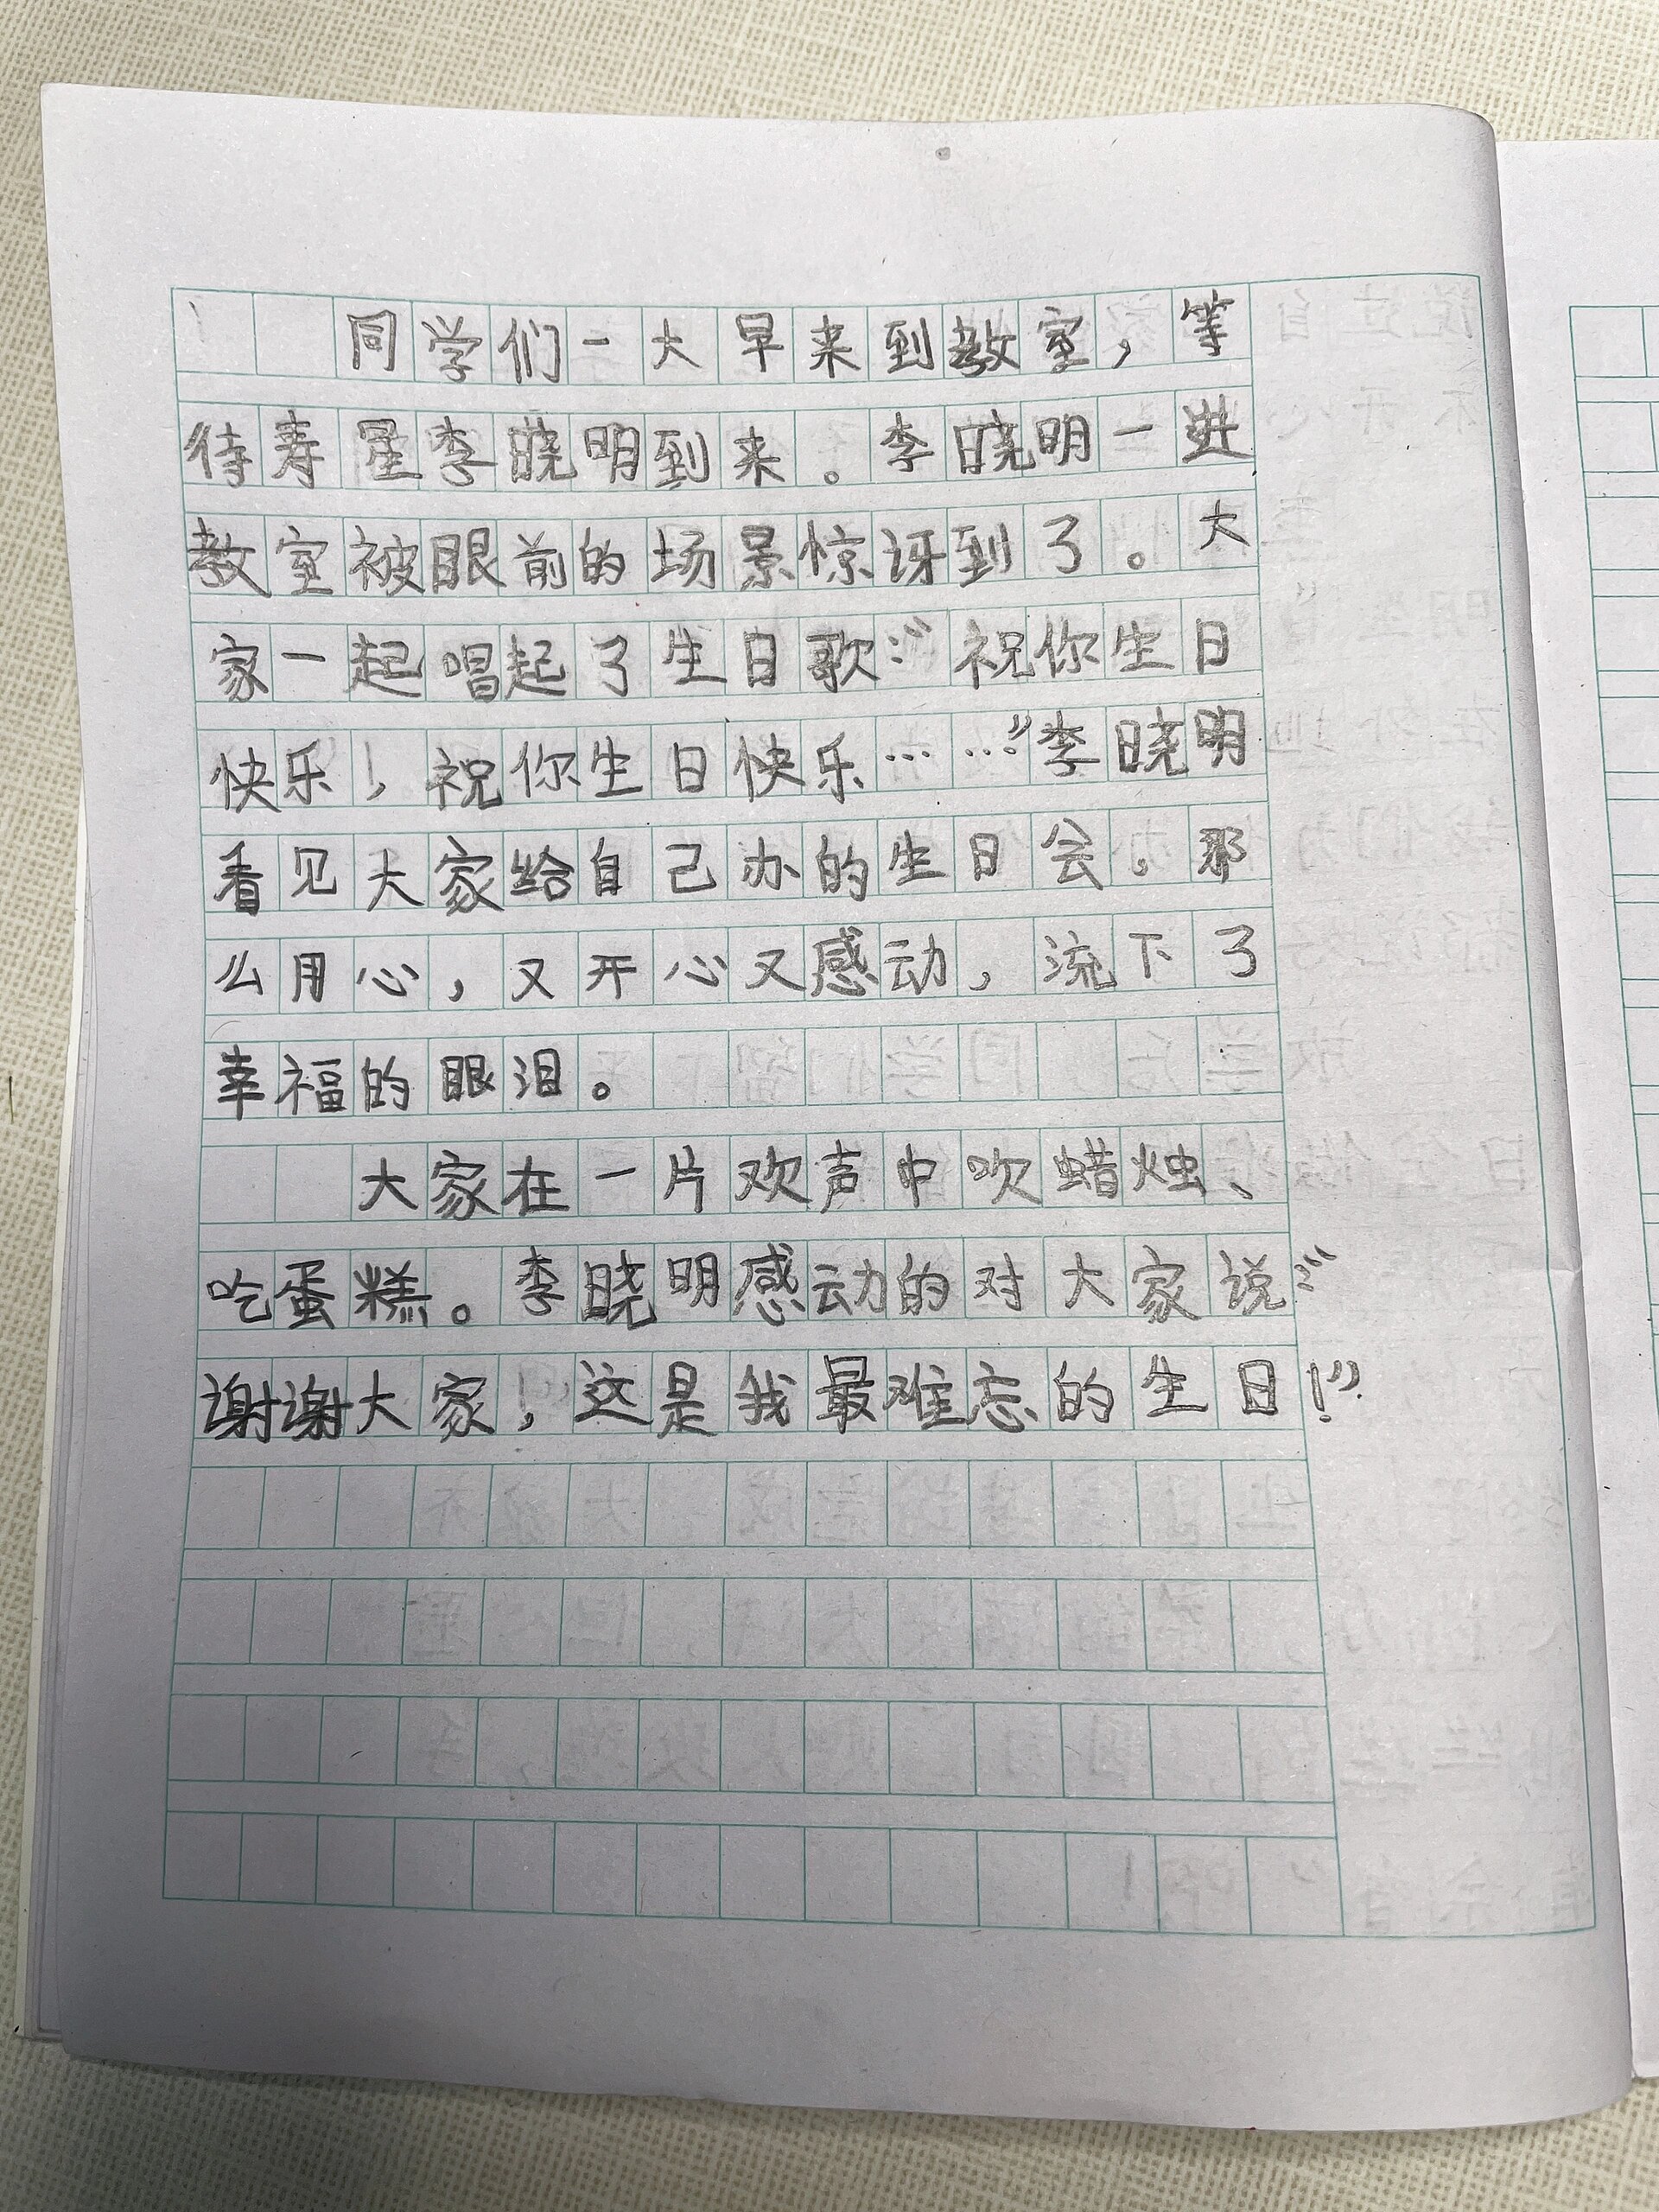 同学们一大早来到教室，等
待寿星李晓明到来。李晓明一进
教室被眼前的场景惊讶到了。大
家一起唱起了生日歌：“祝你生日
快乐，祝你生日快乐……”李晓明
看见大家给自己办的生日会，那
么用心，又开心又感动，流下了
幸福的眼泪。
大家在一片欢声中吹蜡烛、
吃蛋糕。李晓明感动的对大家说：“
谢谢大家，这是我最难忘的生日！”